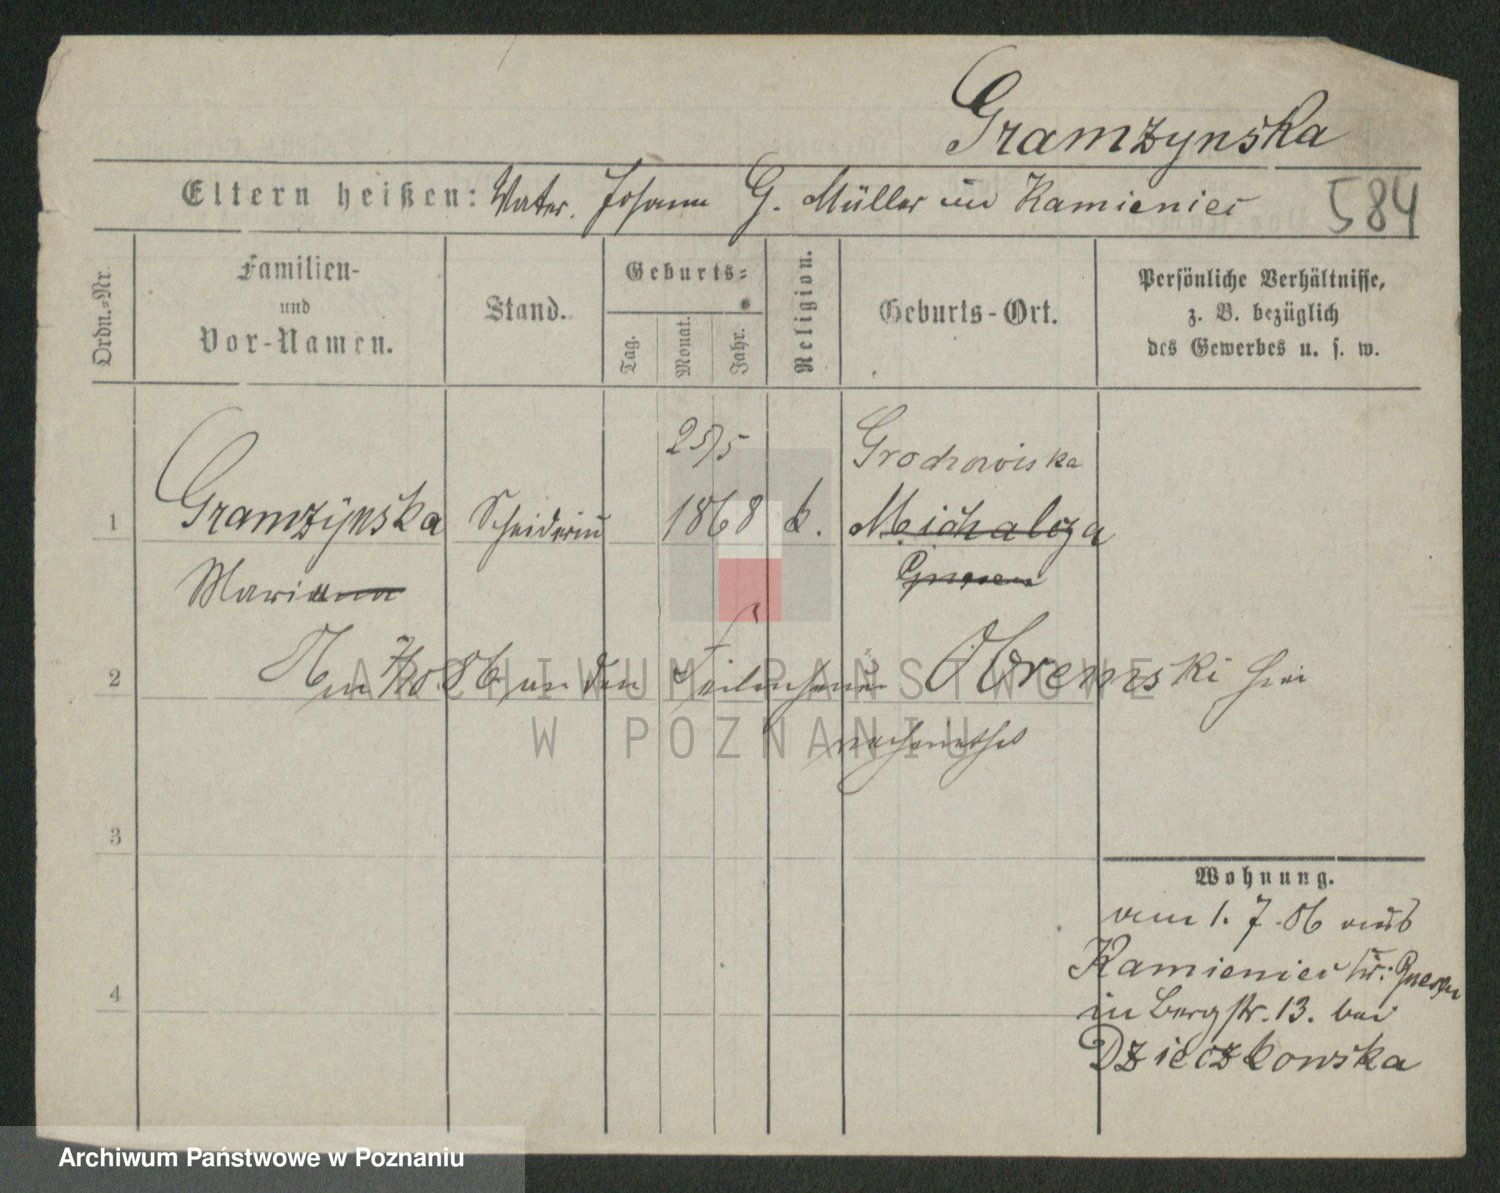 Gramzynska
Eltern heißen: Vater. Johann G. Müller in Kamieniec
584
Ordn.-Nr.
Familien-
und
Vor-Namen.
Stand.
Geburts-
Tag.
Monat.
Jahr.
Religion.
Geburts-Ort.
Persönliche Verhältnisse,
z. B. bezüglich
des Gewerbes u. s. w.
25/5
Grochowiska
1 Gramzynska 1868 k. Michalcza
Mariana Gnesen
2 Am 7/10. 86 an den Obremski hier
3
Wohnung.
am 1. 7. 06 aus
Kamieniec Kr: Gnesen
4
in Bergstr. 13. bei
Dzieczkowska
ARCHIWUM PAŃSTWOWE
W POZNANIU
Archiwum Państwowe w Poznaniu